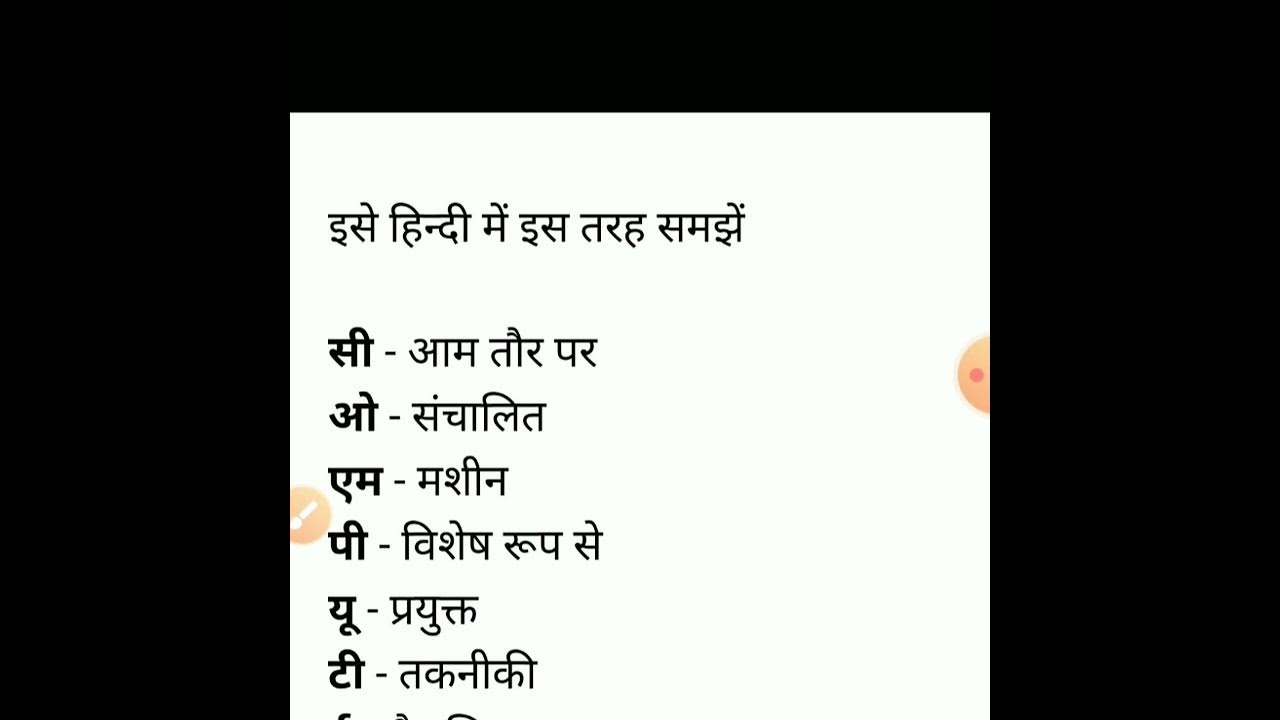 इसे हिन्दी में इस तरह समझें
सी - आम तौर पर
ओ - संचालित
एम - मशीन
पी - विशेष रूप से
यू - प्रयुक्त
टी - तकनीकी